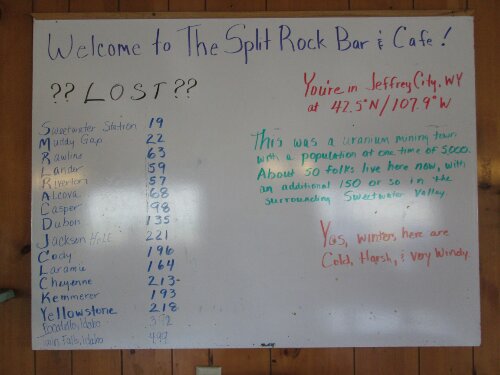 Welcome to The Split Rock Bar & Cafe!
?? LOST ??
Sweetwater Station 19
Muddy Gap 22
Rawlins 63
Lander 59
Riverton 57
Alcova 68
Casper 98
Dubois 135
Jackson Hole 221
Cody 196
Laramie 164
Cheyenne 213
Kemmerer 193
Yellowstone 218
Pocatello, Idaho 392
Twin Falls, Idaho 492
You're in Jeffrey City, WY
at 42.5°N/107.9°W
This was a uranium mining town
with a population at one time of 5,000.
About 50 folks live here now, with
an additional 150 or so in the
surrounding Sweetwater Valley.
Yes, winters here are
Cold, Harsh, & very Windy.